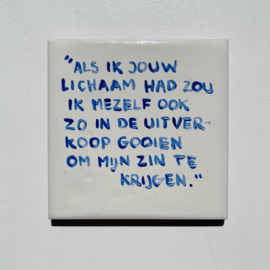 "ALS IK JOUW
LICHAAM HAD ZOU
IK MEZELF OOK
ZO IN DE UITVER-
KOOP GOOIEN
OM MIJN ZIN TE
KRIJGEN."